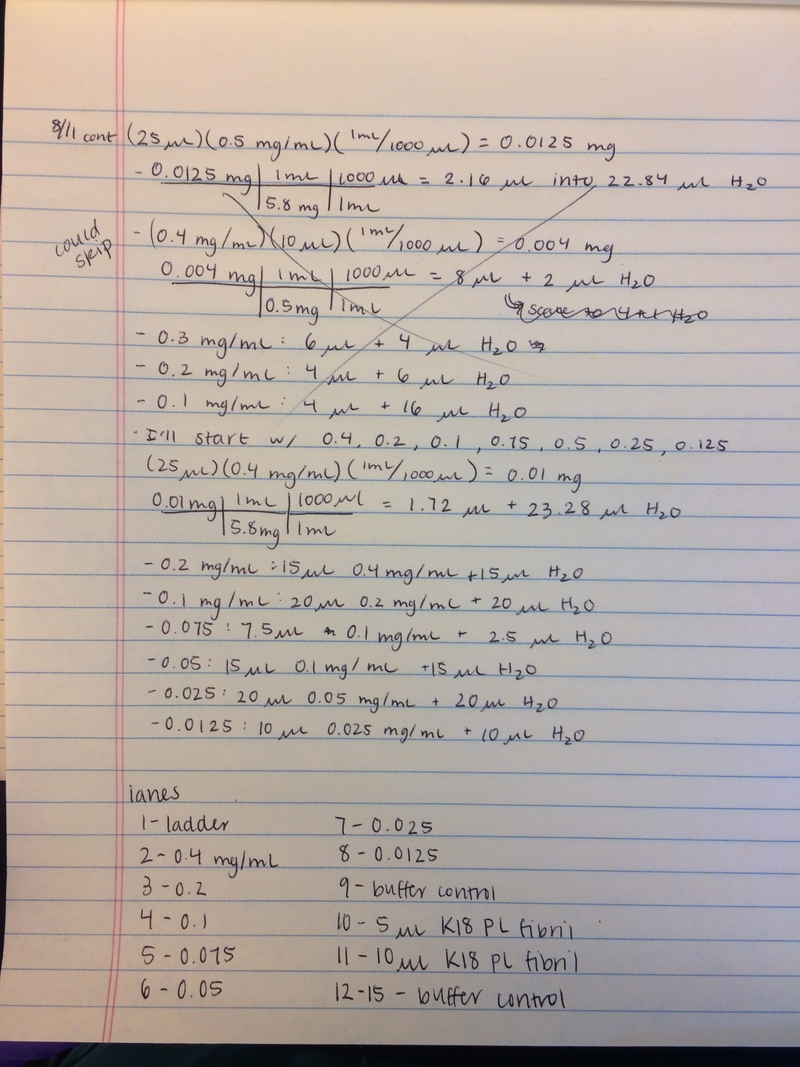 8/11 cont (25 µL)(0.5 mg/mL)(1mL/1000 µL) = 0.0125 mg
- 0.0125 mg | 1mL | 1000 µL = 2.16 µL into 22.84 µL H2O
5.8 mg | 1mL
could skip
- (0.4 mg/mL)(10 µL)(1mL/1000 µL) = 0.004 mg
0.004 mg | 1mL | 1000 µL = 8 µL + 2 µL H2O
0.5mg | 1mL
- 0.3 mg/mL: 6 µL + 4 µL H2O
- 0.2 mg/mL: 4 µL + 6 µL H2O
- 0.1 mg/mL: 4 µL + 16 µL H2O
· I'll start w/ 0.4, 0.2, 0.1, 0.75, 0.5, 0.25, 0.125
(25 µL)(0.4 mg/mL)(1mL/1000 µL) = 0.01 mg
0.01 mg | 1mL | 1000 µL = 1.72 µL + 23.28 µL H2O
5.8mg | 1mL
- 0.2 mg/mL : 15 µL 0.4 mg/mL + 15 µL H2O
- 0.1 mg/mL : 20 µL 0.2 mg/mL + 20 µL H2O
- 0.075 : 7.5 µL 0.1 mg/mL + 2.5 µL H2O
- 0.05 : 15 µL 0.1 mg/mL + 15 µL H2O
- 0.025 : 20 µL 0.05 mg/mL + 20 µL H2O
- 0.0125 : 10 µL 0.025 mg/mL + 10 µL H2O
lanes
1 - ladder
2 - 0.4 mg/mL
3 - 0.2
4 - 0.1
5 - 0.075
6 - 0.05
7 - 0.025
8 - 0.0125
9 - buffer control
10 - 5 µL K18 PL fibril
11 - 10 µL K18 PL fibril
12-15 - buffer control